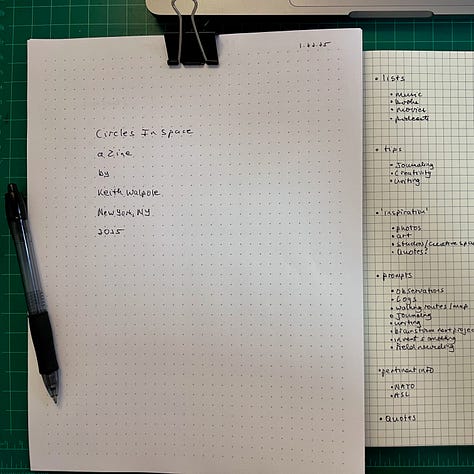 1.22.25
Circles In Space
a Zine
by
Keith Walpole
New York, NY
2025
• lists
• music
• books
• movies
• podcasts
• tips
• Journaling
• Creativity
• writing
• 'inspiration'
• photos
• art
• Studios/creative spac
• Quotes?
• prompts
• Observations
• Logs
• walking routes/map
• Journaling
• writing
• brainstorm next projec
• invent something
• field recording
• pertinent info
• NATO
• ASL
• Quotes